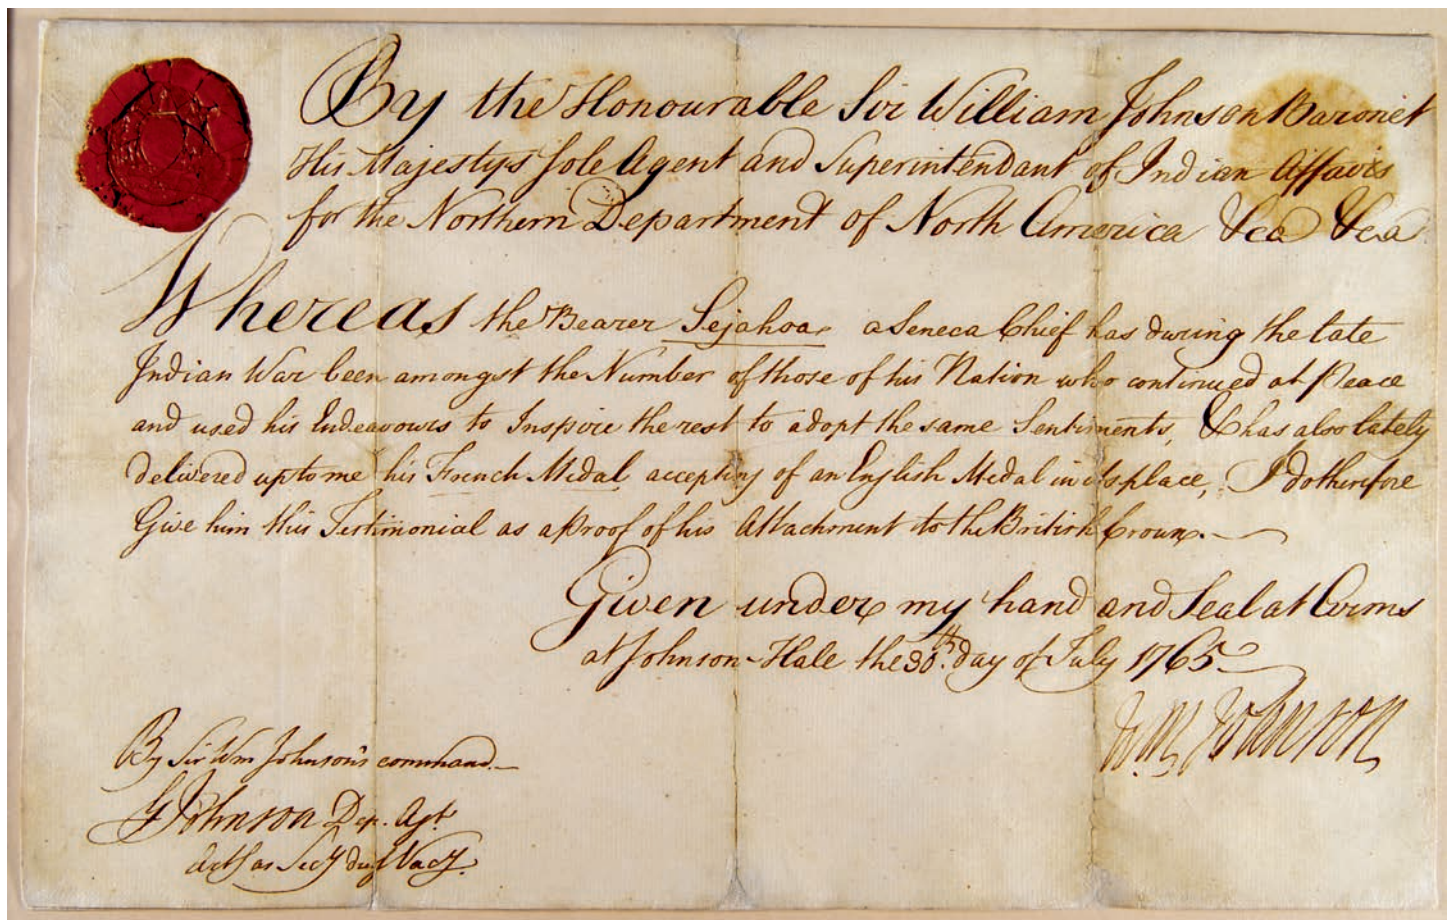 By the Honourable Sir William Johnson Baronet
His Majestys Sole Agent and Superintendant of Indian Affairs
for the Northern Department of North America &ca &ca
Whereas the Bearer Sejahoa a Seneca Chief has during the late
Indian War been amongst the Number of those of his Nation who continued at Peace
and used his Endeavours to Inspire the rest to adopt the same Sentiments, & has also lately
delivered up to me his French Medal accepting of an English Medal in its place, I do therefore
Give him this Testimonial as a Proof of his Attachment to the British Crown.
Given under my hand and Seal at Arms
at Johnson Hale the 30th. day of July 1765
Wm Johnson
By Sir Wm Johnson's command.
G Johnson Dep. Agt.
as Secy Vacy.